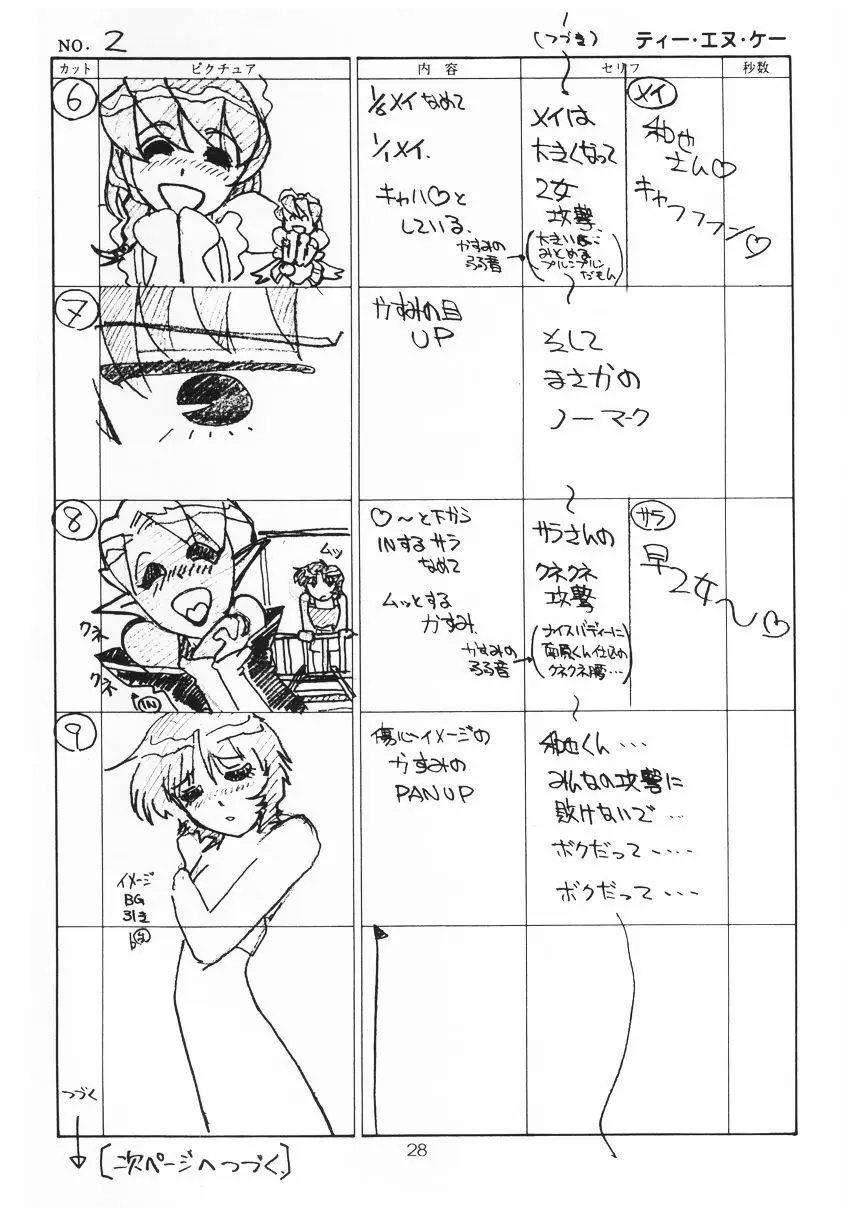 NO. 2
(つづき)
ティー・エヌ・ケー
カット
ピクチュア
内容
セリフ
秒数
6
1/8メイなめて
1/1メイ.
キャハ♡と
している.
メイは
大きくなって
乙女
攻撃.
かすみの
弱音
(大きいぼに
みとめる
プルンプルン
だもん)
メイ
和也
さん♡
キャフフフン♡
7
かすみの目
UP
そして
まさかの
ノーマーク
8
ムッ
クネ
クネ
IN
♡〜と下から
INするサラ
なめて
ムッとする
かすみ.
サラさんの
クネクネ
攻撃
かすみの
弱音
(ナイスバディーに
南原くん仕込の
クネクネ腰…)
サラ
早乙女〜♡
9
イメージ
BG
引き
傷心イメージの
かすみの
PAN UP
和也くん・・・
みんなの攻撃に
敗けないで・・
ボクだって・・・・
ボクだって・・・
つづく
[次ページへつづく.]
28